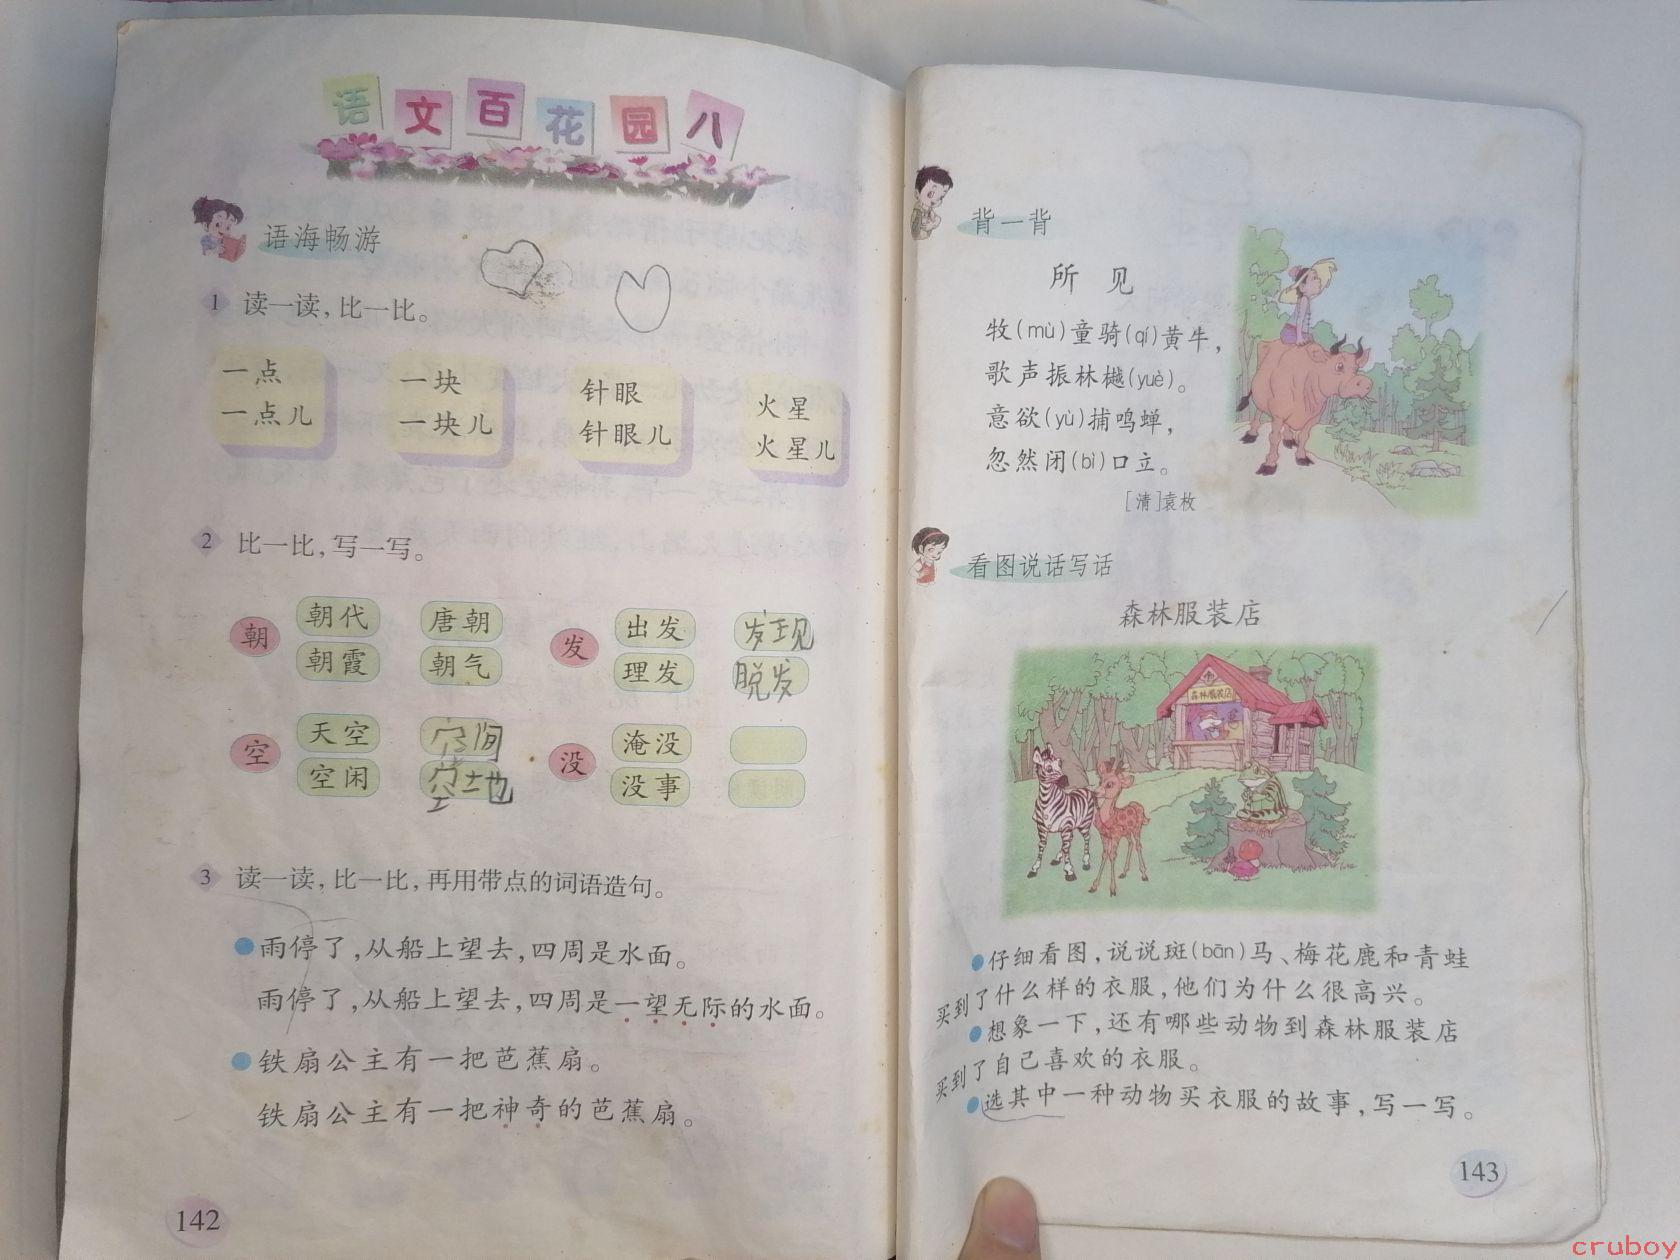 语文百花园八
语海畅游
1 读一读，比一比。
一点
一点儿
一块
一块儿
针眼
针眼儿
火星
火星儿
2 比一比，写一写。
朝 朝代 唐朝
朝霞 朝气
发 出发 发现
理发 脱发
空 天空 空间
空闲 空地
没 淹没
没事
3 读一读，比一比，再用带点的词语造句。
雨停了，从船上望去，四周是水面。
雨停了，从船上望去，四周是一望无际的水面。
铁扇公主有一把芭蕉扇。
铁扇公主有一把神奇的芭蕉扇。
142
背一背
所见
牧(mù)童骑(qí)黄牛，
歌声振林樾(yuè)。
意欲(yù)捕鸣蝉，
忽然闭(bì)口立。
[清]袁枚
看图说话写话
森林服装店
森林服装店
仔细看图，说说斑(bān)马、梅花鹿和青蛙
买到了什么样的衣服，他们为什么很高兴。
想象一下，还有哪些动物到森林服装店
买到了自己喜欢的衣服。
选其中一种动物买衣服的故事，写一写。
143
cruboy